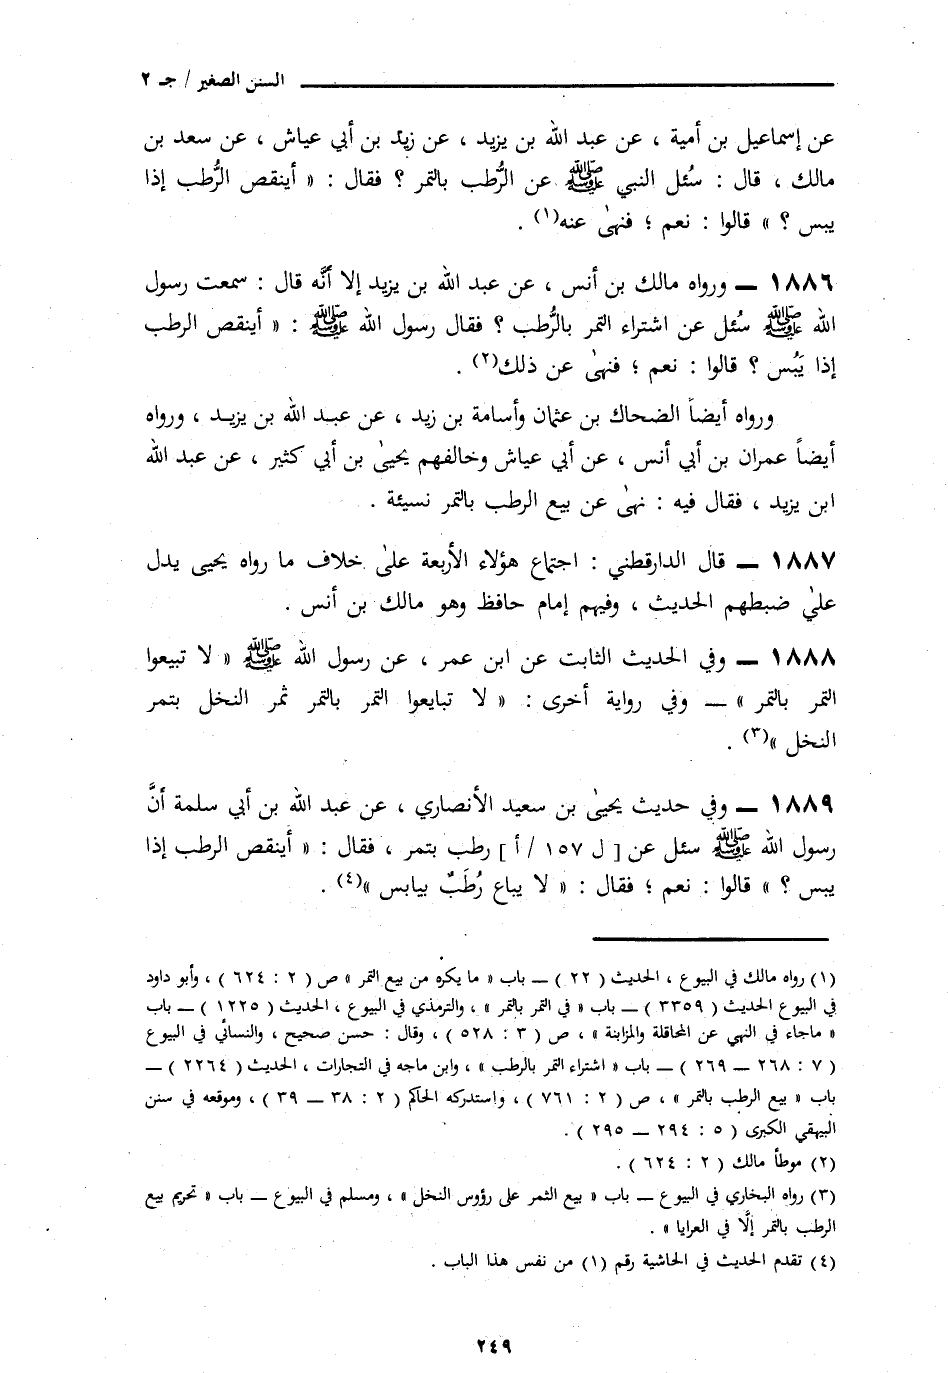 السنن الصغير / جـ ٢
عن إسماعيل بن أمية ، عن عبد الله بن يزيد ، عن زيد بن أبي عياش ، عن سعد بن
مالك ، قال : سُئل النبي ﷺ عن الرُّطب بالتمر ؟ فقال : « أينقص الرُّطب إذا
يبس ؟ » قالوا : نعم ؛ فنهىٰ عنه(١) .
١٨٨٦ ــ ورواه مالك بن أنس ، عن عبد الله بن يزيد إلا أنَّه قال : سمعت رسول
الله ﷺ سُئل عن اشتراء التمر بالرُّطب ؟ فقال رسول الله ﷺ : « أينقص الرطب
إذا يَبُس ؟ قالوا : نعم ؛ فنهىٰ عن ذلك(٢) .
ورواه أيضاً الضحاك بن عثمان وأسامة بن زيد ، عن عبـد الله بن يزيـد ، ورواه
أيضاً عمران بن أبي أنس ، عن أبي عياش وخالفهم يحيىٰ بن أبي كثير ، عن عبد الله
ابن يزيد ، فقال فيه : نهىٰ عن بيع الرطب بالتمر نسيئة .
١٨٨٧ ــ قال الدارقطني : اجتماع هؤلاء الأربعة علىٰ خلاف ما رواه يحيى يدل
علىٰ ضبطهم الحديث ، وفيهم إمام حافظ وهو مالك بن أنس .
١٨٨٨ ــ وفي الحديث الثابت عن ابن عمر ، عن رسول الله ﷺ « لا تبيعوا
التمر بالتمر » ــ وفي رواية أخرى : « لا تبايعوا التمر بالتمر ثمر النخل بتمر
النخل »(٣) .
١٨٨٩ ــ وفي حديث يحيىٰ بن سعيد الأنصاري ، عن عبد الله بن أبي سلمة أنَّ
رسول الله ﷺ سئل عن [ ل ١٥٧ / أ ] رطب بتمر ، فقال : « أينقص الرطب إذا
يبس ؟ » قالوا : نعم ؛ فقال : « لا يباع رُطَبٌ بيابس »(٤) .
(١) رواه مالك في البيوع ، الحديث ( ٢٢ ) ــ باب « ما يكره من بيع التمر » ص ( ٢ : ٦٢٤ ) ، وأبو داود
في البيوع الحديث ( ٣٣٥٩ ) ــ باب « في التمر بالتمر » ، والترمذي في البيوع ، الحديث ( ١٢٢٥ ) ــ باب
« ماجاء في النهي عن المحاقلة والمزابنة » ، ص ( ٣ : ٥٢٨ ) ، وقال : حسن صحيح ، والنسائي في البيوع
( ٧ : ٢٦٨ ــ ٢٦٩ ) ــ باب « اشتراء التمر بالرطب » ، وابن ماجه في التجارات ، الحديث ( ٢٢٦٤ ) ــ
باب « بيع الرطب بالتمر » ، ص ( ٢ : ٧٦١ ) ، واستدركه الحاكم ( ٢ : ٣٨ ــ ٣٩ ) ، وموقعه في سنن
البيهقي الكبرى ( ٥ : ٢٩٤ ــ ٢٩٥ ) .
(٢) موطأ مالك ( ٢ : ٦٢٤ ) .
(٣) رواه البخاري في البيوع ــ باب « بيع الثمر على رؤوس النخل » ، ومسلم في البيوع ــ باب « تحريم بيع
الرطب بالتمر إلَّا في العرايا » .
(٤) تقدم الحديث في الحاشية رقم (١) من نفس هذا الباب .
٢٤٩